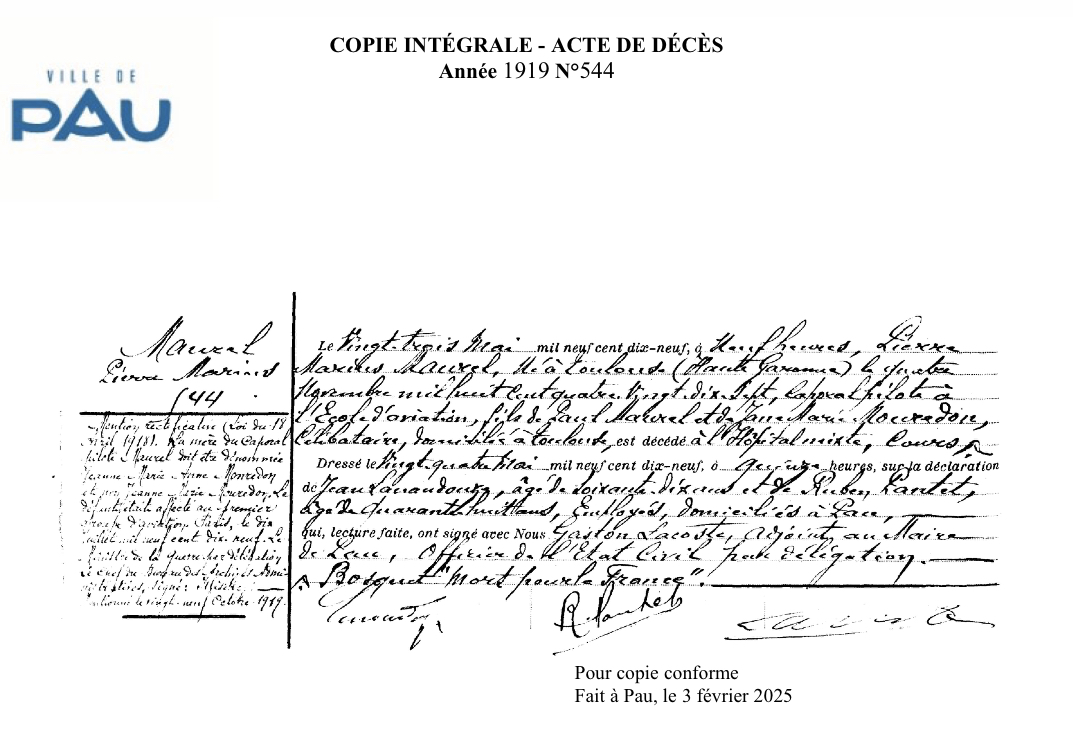 COPIE INTÉGRALE - ACTE DE DÉCÈS
Année 1919 N°544
VILLE DE
PAU
Maurel
Pierre Marius
544
Mention rectificative (Loi du 18
Avril 1918). La mère du Caporal
pilote Maurel doit être dénommée
Jeanne Marie Anne Mouredon
et non Jeanne Marie Mouredon. Le
défunt était affecté au premier
groupe d'aviation. Paris, le dix
juillet mil neuf cent dix neuf. Le
Ministre de la guerre par délégation
Le chef du Bureau des Archives Admi-
nistratives, signé:
le vingt-neuf Octobre 1919.
Le Vingt-trois Mai mil neuf cent dix-neuf, à Neuf heures, Pierre
Marius Maurel, Né à Toulouse (Haute Garonne) le quatre
Novembre mil huit cent quatre Vingt dix Sept, Caporal pilote à
l'Ecole d'aviation, fils de Paul Maurel et de Jane Marie Mouredon,
Célibataire, domicilié à Toulouse, est décédé à l'Hôpital mixte, Cours
Dressé le Vingt-quatre Mai mil neuf cent dix-neuf, à quinze heures, sur la déclaration
de Jean Lanardouze, âgé de soixante dix ans et de Ruben Pantet,
âgé de quarante huit ans, Employés, domiciliés à Pau,
qui, lecture faite, ont signé avec Nous Gaston Lacoste, adjoint au Maire
de Pau, Officier de l'Etat Civil par délégation.
Bosquet "Mort pour la France".
Pour copie conforme
Fait à Pau, le 3 février 2025